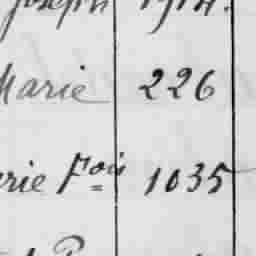 Joseph 1914.
Marie 226
erie Fois 1035